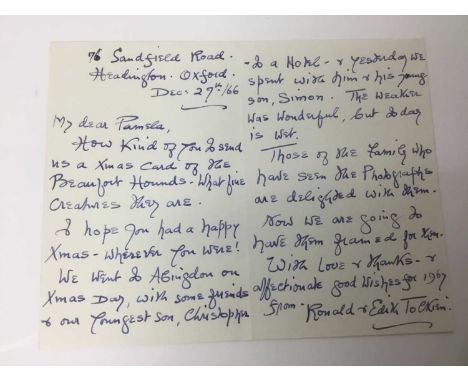 76 Sandfield Road.
Headington. Oxford.
Dec. 29th/66
My dear Pamela,
How Kind of you to send
us a Xmas Card of the
Beaufort Hounds - What fine
Creatures they are.
I hope you had a happy
Xmas - wherever you were!
We went to Abingdon on
Xmas Day, with some friends
& our youngest son, Christopher
- to a Hotel - & yesterday we
spent with him & his young
son, Simon. The weather
was wonderful, but today
is wet.
Those of the Family who
have seen the Photographs
are delighted with them.
Now we are going to
have them framed for them.
With Love & thanks - &
affectionate good wishes for 1967
from Ronald & Edith Tolkien.